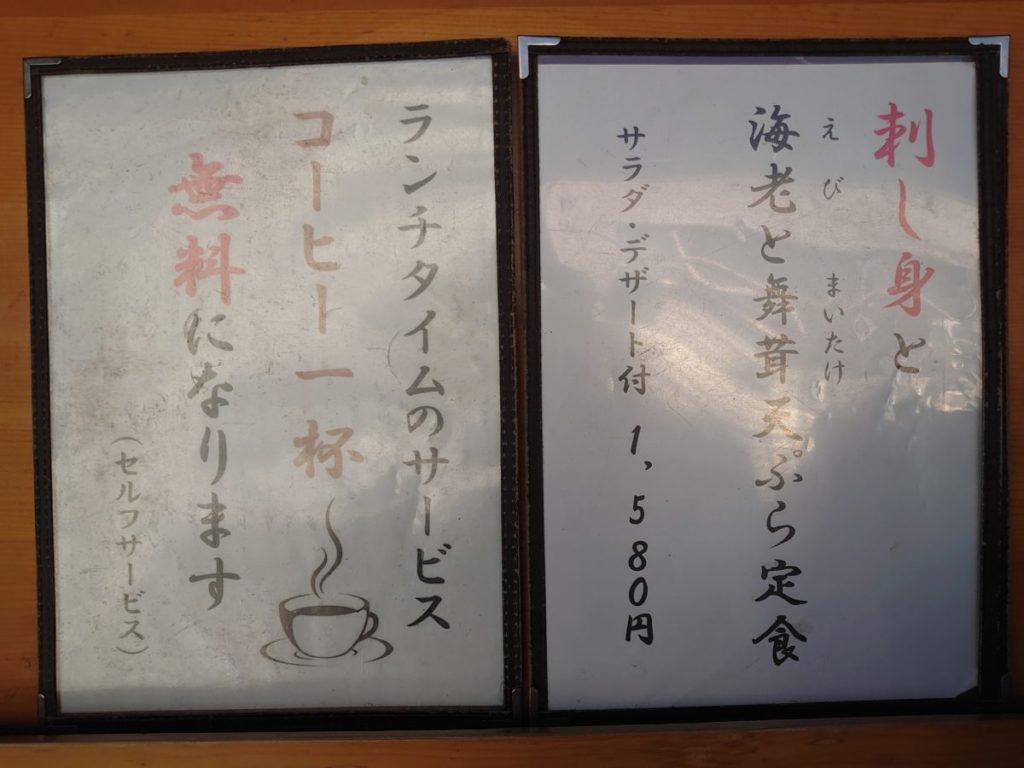 刺し身と
えび まいたけ
海老と舞茸天ぷら定食
サラダ・デザート付 1,580円
ランチタイムのサービス
コーヒー一杯
無料になります
(セルフサービス)